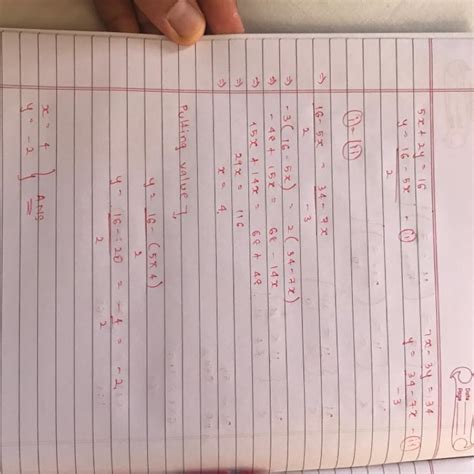 Date
Page
5x + 2y = 16
7x - 3y = 34
y = 16 - 5x / 2 - (i)
y = 34 - 7x / -3 - (ii)
(i) = (ii)
⇒ 16 - 5x / 2 = 34 - 7x / -3
⇒ -3(16 - 5x) = 2(34 - 7x)
⇒ - 48 + 15x = 68 - 14x
⇒ 15x + 14x = 68 + 48
⇒ 29x = 116
⇒ x = 4.
Putting value
y = 16 - (5×4) / 2
y = 16 - 20 / 2 = - 4 / 2 = - 2
x = 4
y = -2 } Ans